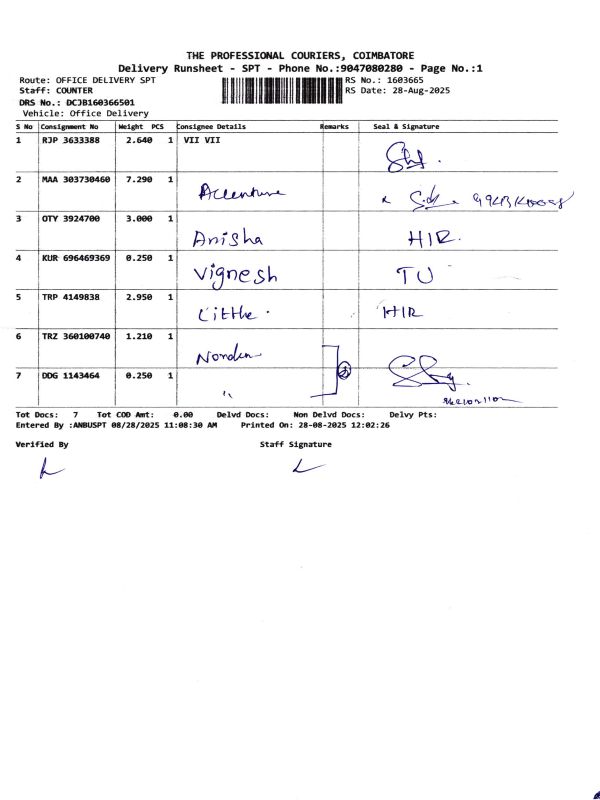 THE PROFESSIONAL COURIERS, COIMBATORE
Delivery Runsheet - SPT - Phone No.:9047080280 - Page No.:1
Route: OFFICE DELIVERY SPT RS No.: 1603665
Staff: COUNTER RS Date: 28-Aug-2025
DRS No.: DCJB160366501
Vehicle: Office Delivery
S No Consignment No Weight PCS Consignee Details Remarks Seal & Signature
1 RJP 3633388 2.640 1 VII VII
2 MAA 303730460 7.290 1 Accenture
3 OTY 3924700 3.000 1 Anisha HIR.
4 KUR 696469369 0.250 1 Vignesh TU
5 TRP 4149838 2.950 1 HIR
6 TRZ 360100740 1.210 1
7 DDG 1143464 0.250 1 "
Tot Docs: 7 Tot COD Amt: 0.00 Delvd Docs: Non Delvd Docs: Delvy Pts:
Entered By :ANBUSPT 08/28/2025 11:08:30 AM Printed On: 28-08-2025 12:02:26
Verified By Staff Signature